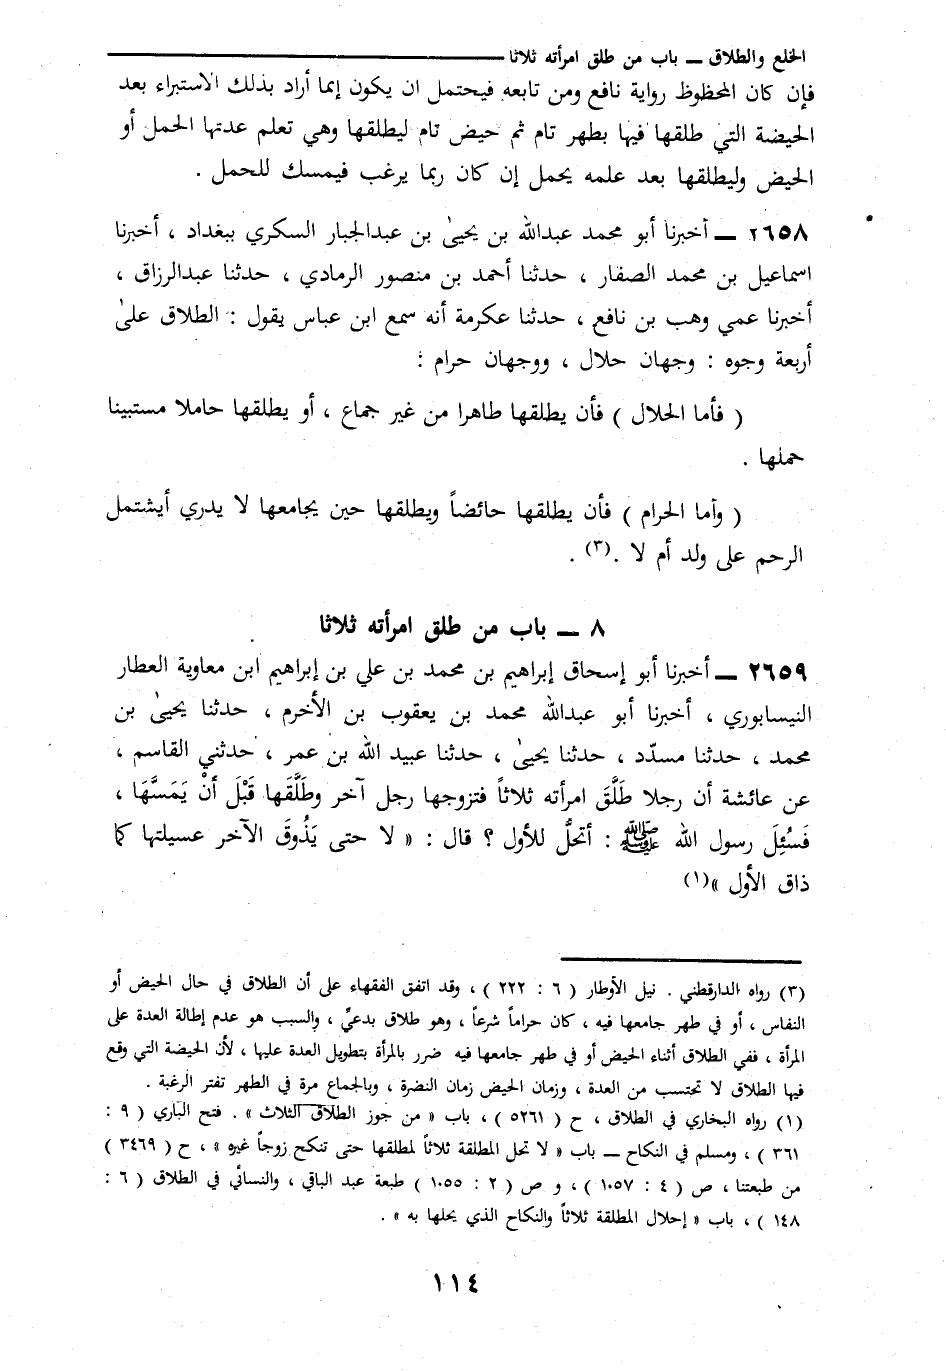 الخلع والطلاق ــ باب من طلق امرأته ثلاثا
فإن كان المحظوظ رواية نافع ومن تابعه فيحتمل ان يكون إنما أراد بذلك الاستبراء بعد
الحيضة التي طلقها فيها بطهر تام ثم حيض تام ليطلقها وهي تعلم عدتها الحمل أو
الحيض وليطلقها بعد علمه يحمل إن كان ربما يرغب فيمسك للحمل .
٢٦٥٨ ــ أخبرنا أبو محمد عبدالله بن يحيىٰ بن عبدالجبار السكري ببغداد ، أخبرنا
اسماعيل بن محمد الصفار ، حدثنا أحمد بن منصور الرمادي ، حدثنا عبدالرزاق ،
أخبرنا عمي وهب بن نافع ، حدثنا عكرمة أنه سمع ابن عباس يقول : الطلاق علىٰ
أربعة وجوه : وجهان حلال ، ووجهان حرام :
( فأما الحلال ) فأن يطلقها طاهرا من غير جماع ، أو يطلقها حاملا مستبينا
حملها .
( وأما الحرام ) فأن يطلقها حائضاً ويطلقها حين يجامعها لا يدري أيشتمل
الرحم على ولد أم لا .(٣) .
٨ ــ باب من طلق امرأته ثلاثا
٢٦٥٩ ــ أخبرنا أبو إسحاق إبراهيم بن محمد بن علي بن إبراهيم ابن معاوية العطار
النيسابوري ، أخبرنا أبو عبدالله محمد بن يعقوب بن الأخرم ، حدثنا يحيىٰ بن
محمد ، حدثنا مسدّد ، حدثنا يحيىٰ ، حدثنا عبيد الله بن عمر ، حدثني القاسم ،
عن عائشة أن رجلا طَلَّقَ امرأته ثلاثاً فتزوجها رجل آخر وطَلَّقَها قَبْلَ أنْ يَمَسَّهَا ،
فَسُئِلَ رسول الله ﷺ : أتحلُّ للأول ؟ قال : « لا حتى يَذُوقَ الآخر عسيلتها كما
ذاق الأول »(١)
(٣) رواه الدارقطني . نيل الأوطار ( ٦ : ٢٢٢ ) ، وقد اتفق الفقهاء على أن الطلاق في حال الحيض أو
النفاس ، أو في طهر جامعها فيه ، كان حراماً شرعاً ، وهو طلاق بدعيِّ ، والسبب هو عدم إطالة العدة على
المرأة ، ففي الطلاق أثناء الحيض أو في طهر جامعها فيه ضرر بالمرأة بتطويل العدة عليها ، لأن الحيضة التي وقع
فيها الطلاق لا تحتسب من العدة ، وزمان الحيض زمان النضرة ، وبالجماع مرة في الطهر تفتر الرغبة .
(١) رواه البخاري في الطلاق ، ح ( ٥٢٦١ ) ، باب « من جوز الطلاق الثلاث » . فتح الباري ( ٩ :
٣٦١ ) ، ومسلم في النكاح ــ باب « لا تحل المطلقة ثلاثاً لمطلقها حتى تنكح زوجاً غيره » ، ح ( ٣٤٦٩ )
من طبعتنا ، ص ( ٤ : ١٠٥٧ ) ، و ص ( ٢ : ١٠٥٥ ) طبعة عبد الباقي ، والنسائي في الطلاق ( ٦ :
١٤٨ ) ، باب « إحلال المطلقة ثلاثاً والنكاح الذي يحلها به » .
١١٤